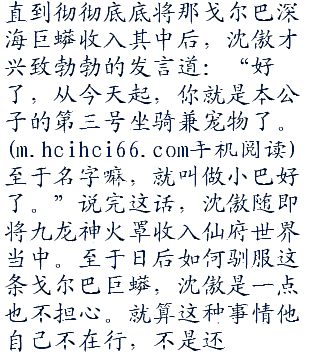 直到彻彻底底将那戈尔巴深
海巨蟒收入其中后，沈傲才
兴致勃勃的发言道：“好
了，从今天起，你就是本公
子的第三号坐骑兼宠物了。
(m.hcihci66.com手机阅读)
至于名字嘛，就叫做小巴好
了。”说完这话，沈傲随即
将九龙神火罩收入仙府世界
当中。至于日后如何驯服这
条戈尔巴巨蟒，沈傲是一点
也不担心。就算这种事情他
自己不在行，不是还